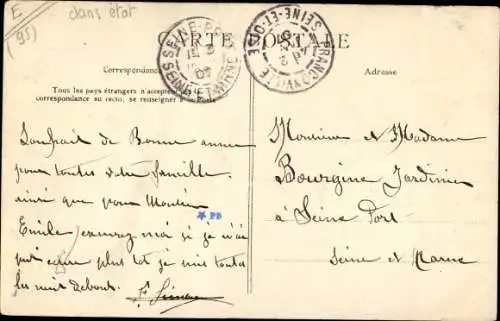 E dans état
(95)
CARTE POSTALE
Correspondance
Adresse
Tous les pays étrangers n'acceptent
correspondance au recto, se renseigner à la Poste
SEINE-PORT
SEINE ET MARNE
FRANCONVILLE
SEINE-ET-OISE
Souhait de Bonne année
pour toutes votre famille
ainsi que pour Monsieur
Emile excusez moi si je n'ai
écrire plus tot je suis toutes
les nuit debout.
PB
Monsieur et Madame
Bourgine Jardinier
à Seine Port
Seine et Marne